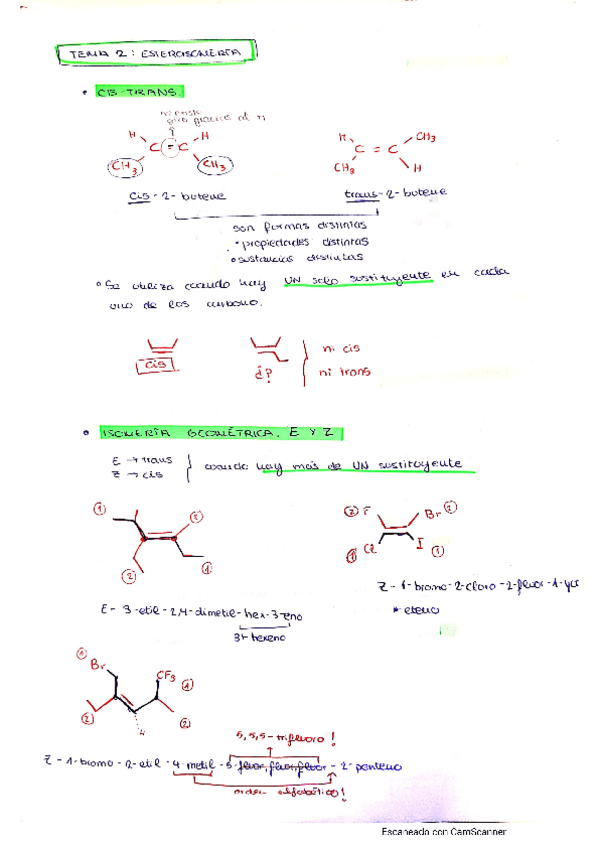 TEMA 2: ESTEROISOMERÍA
• CIS-TRANS.
gracias al π
H H
C = C
CH3 CH3
H CH3
C = C
CH3 H
cis-2-buteno
trans-2-buteno
son formas distintas
• propiedades distintas
• sustancias distintas
• Se utiliza cuando hay UN solo sustituyente en cada
uno de los carbono.
cis
¿?
ni cis
ni trans
• ISOMERÍA GEOMÉTRICA. E Y Z
E → trans
Z → cis
cuando hay más de UN sustituyente
1 2
2 1
2 F Br 2
1 Cl I 1
Z-1-bromo-2-cloro-2-fluor-1-yo
* eteno
E-3-etil-2,4-dimetil-hex-3-eno
3-hexeno
1
Br
CF3 1
2 2
4
5,5,5-trifluoro!
Z-1-bromo-2-etil-4-metil-5-fluor,fluor,fluor-2-penteno
orden alfabético!
Escaneado con CamScanner